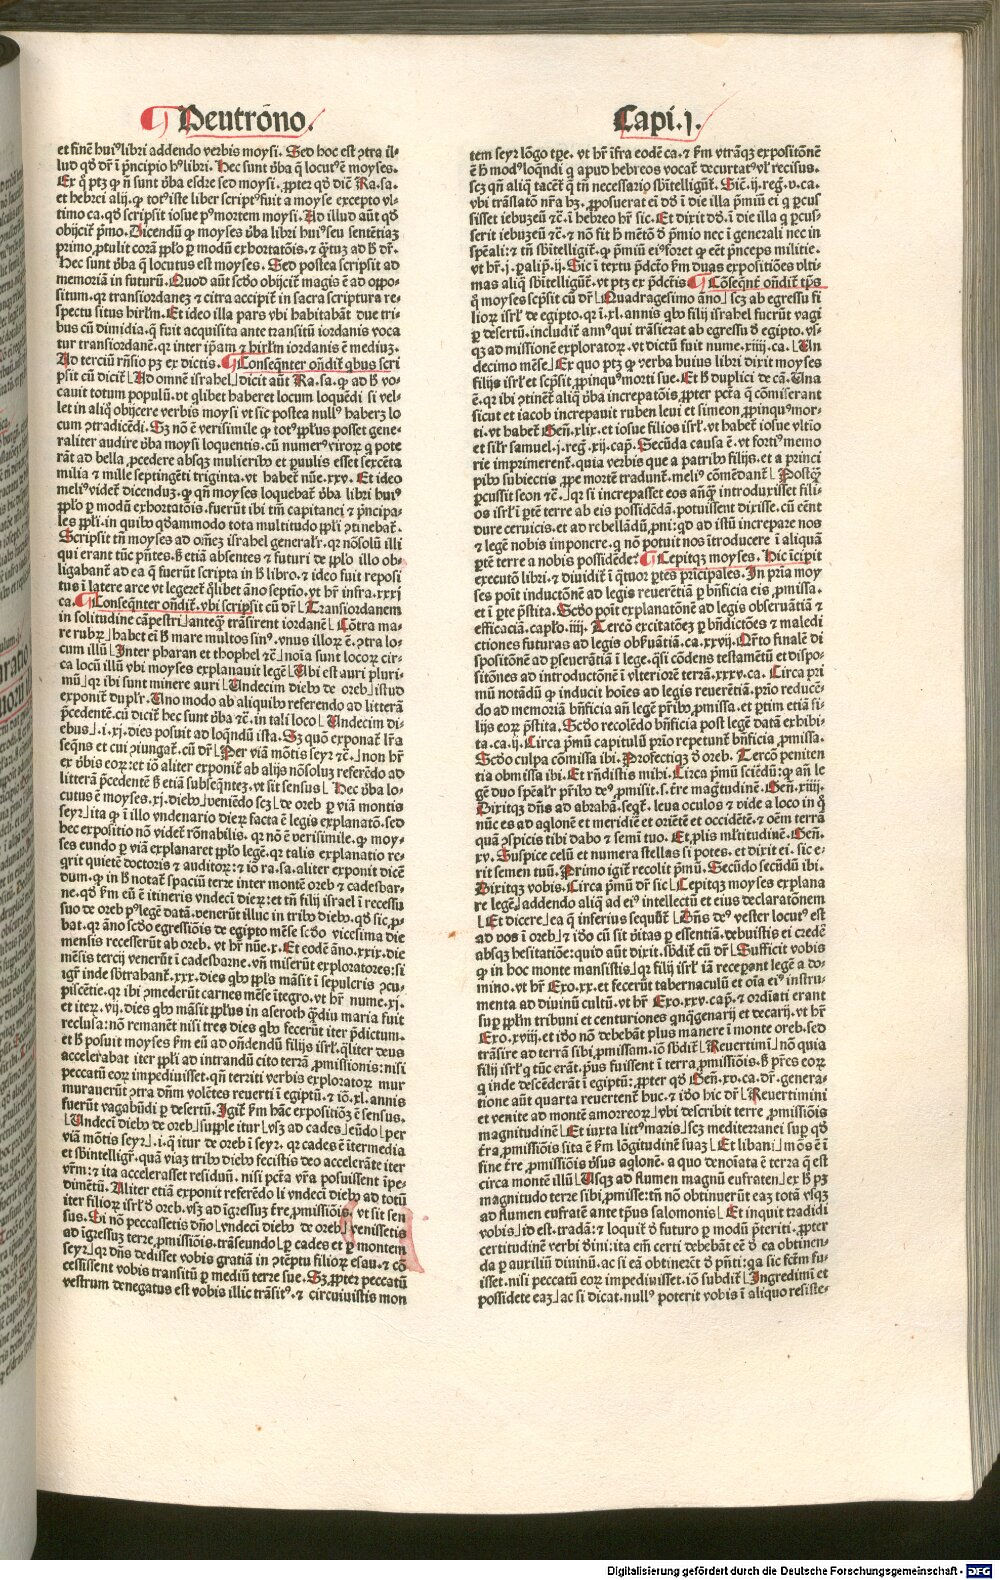 Deutrōno.
et finē huiꝰ libri addendo verbis moysi. Sed hoc est ꝯtra il-
lud qd̄ dr̄ ī pͥncipio hꝰ libri. Hec sunt v̄ba q̄ locutꝰ ē moyses.
Ex q̄ ptꝫ ꝙ nō sunt v̄ba esdre sed moysi. ꝓpter qd̄ dic̄ Ra. sa.
et hebrei alij. ꝙ totꝰ iste liber scriptꝰ fuit a moyse excepto vl-
timo ca. qd̄ scripsit iosue pꝰ mortem moysi. Ad illud aūt qd̄
obijcit̄ pͥmo. Dicendū ꝙ moyses v̄ba libri huiꝰ seu sententiaꝫ
primo ꝓtulit corā pplo per modū exhortatōis. ⁊ q̄tuꝫ ad h̄ dr̄.
Hec sunt v̄ba q̄ locutus est moyses. Sed postea scripsit ad
memoriā in futurū. Quod aūt scd̄o obijcit̄ magis ē ad oppo-
situm. qꝛ transiordaneꝫ ⁊ citra accipit̄ in sacra scriptura re-
spectu situs hirlm̄. Et ideo illa pars vbi habitabāt due tri-
bus cū dimidia. q̄ fuit acquisita ante transitū iordanis voca
tur transiordanē. qꝛ inter ip̄am ⁊ hirlm̄ iordanis ē mediꝰ.
Ad terciū rn̄sio pꝫ ex dictis. ¶ Conseq̄nter on̄dit̄ qͥbus scri
psit cū dicit̄ Ad omnē israhel dicit aūt Ra. sa. ꝙ ad h̄ vo-
cauit totum populū. vt qͥlibet haberet locum loquēdi si vel-
let in aliq̄ obijcere verbis moysi vt sic postea nullꝰ haberꝫ lo
cum ꝯtradicēdi. Sꝫ nō ē verisimile ꝙ totꝰ pplus posset gene-
raliter audire v̄ba moysi loquentis. cū numerꝰ viroꝝ q̄ pote
rāt ad bella ꝓcedere absqꝫ mulieribꝰ et puulis esset sexcēta
milia ⁊ mille septingēti triginta. vt habet̄ nūe. xxv. Et ideo
meliꝰ videt̄ dicenduꝫ. ꝙ qn̄ moyses loquebat̄ v̄ba libri huiꝰ
pplo p modū exhortatōis. fuerūt ibi tm̄ capitanei ⁊ pͥncipa-
les ppli. in quibꝰ qd̄ammodo tota multitudo ppli ꝯtinebat̄.
Scripsit tn̄ moyses ad om̄eꝫ israhel generalr̄. qꝛ nō solū illi
qui erant tūc pn̄tes. s̄ etiā absentes ⁊ futuri de pplo illo ob-
ligabant̄ ad ea q̄ fuerūt scripta in h̄ libro. ⁊ ideo fuit reposi
tus ī latere arce vt legeret̄ qͥlibet āno septīo. vt hr̄ infra. xxxj
ca. ¶ Conseq̄nter on̄dit̄. vbi scripsit cū dr̄ Transiordanem
in solitudine cāpestri anteq̄ᷓ trāsirent iordanē Cōtra ma-
re rubꝝ habet ei h̄ mare multos sinꝰ. vnus illoꝝ ē. ꝯtra lo-
cum illū Inter pharan et thophel ⁊c̄ noīa sunt locoꝝ cir-
ca locū illū vbi moyses explanauit legē Vbi est auri pluri-
mū qꝛ ibi sunt minere auri Undecim diebꝰ de oreb istud
exponit̄ duplr̄. Uno modo ab aliquibꝰ referendo ad litterā
p̄cedentē. cū dicit̄ hec sunt v̄ba ⁊c̄. in tali loco Undecim di-
ebus. i. xj. dies posuit ad loqn̄dū ista. Sꝫ quō exponat̄ lr̄a
seq̄ns et cui ꝯiungat̄. cū dr̄ Per viā mōtis seyr ⁊c̄. non hr̄
ex v̄bis eoꝝ. et iō aliter exponit̄ ab alijs nō soluꝫ referēdo ad
litterā p̄cedentē s̄ etiā subseq̄ntez. vt sit sensus Hec v̄ba lo-
cutus ē moyses. xj. diebꝰ veniēdo scꝫ de oreb p̄ viā montis
seyr ita ꝙ ī illo vndenario dieꝝ facta ē legis explanatō. sed
hec expositio nō videt̄ rōnabilis. qꝛ nō ē verisimile. ꝙ moy-
ses eundo p̄ viā explanaret pplo legē. qꝛ talis explanatio re-
qrit quietē doctoris ⁊ auditoꝝ: ⁊ iō ra. sa. aliter exponit dicē
dum. ꝙ in h̄ notat̄ spaciū terre inter montē oreb ⁊ cadesbar-
ne. qd̄ km̄ eū ē itineris vndeci dieꝝ: et tn̄ filij israel ī recessu
suo de oreb pꝰ legē datā. venerūt illuc in tribꝰ diebꝰ. qd̄ sic ꝓ-
bat. qꝛ āno scd̄o egressiōis de egipto mēse scd̄o vicesima die
mensis recesserūt ab oreb. vt hr̄ nūe. x. Et eodē āno. xxix. die
mēsis tercij venerūt ī cadesbarne. vn̄ miserūt exploratores: si
igr̄ inde sb̄trahant̄. xxx. dies qͥbꝰ pplus māsit ī sepulcris ꝯcu-
piscētie. qꝛ ibi ꝯmederūt carnes mēse ītegro. vt hr̄ nume. xj.
et iteꝝ. vij. dies qͥbꝰ māsit pplus in aseroth qᷓdiu maria fuit
reclusa: nō remanēt nisi tres dies qͥbꝰ fecerūt iter p̄dictum.
et h̄ posuit moyses km̄ eū ad on̄dendū filijs isrl̄. qͥliter deus
accelerabat iter ppli ad intrandū cito terrā ꝓmissionis: nisi
peccatū eoꝝ impediuisset. qn̄ territi verbis exploratoꝝ mur
murauerūt ꝯtra dn̄m volētes reuerti ī egiptū. ⁊ iō. xl. annis
fuerūt vagabūdi p desertū. Igit̄ km̄ hāc expositiōeꝫ ē sensus.
Undeci diebꝰ de oreb supple itur vsqꝫ ad cades eūdo per
viā mōtis seyr i. q̄ itur de oreb ī seyr. qꝛ cades ē ītermedia
et sb̄intelligr̄. quā viaꝫ tribꝰ diebꝰ fecistis deo accelerāte iter
vr̄m: ⁊ ita accelerasset residuū. nisi pctā vr̄a posuissent īpe-
dimētū. Aliter etiā exponit̄ referēdo li vndeci diebꝰ ad totū
iter filioꝝ isrl̄ d̄ oreb. vsqꝫ ad īgressuꝫ tr̄e ꝓmissiōis. vt sit sen
sus. Si nō peccassetis dn̄o vndeci diebꝰ de oreb venissetis
ad īgressuꝫ terre ꝓmissiōis. trāseundo p cades et p montem
seyr qꝛ dn̄s dedisset vobis gratiā in ꝯtēptu filioꝝ esau. ⁊ cō
cessissent vobis transitū p mediū terre sue. Sꝫ ꝓpter peccatū
vestrum denegatus est vobis illic trāsitꝰ. ⁊ circuiuistis mon
Capi. j.
tem seyr lōgo tp̄e. vt hr̄ īfra eodē ca. ⁊ km̄ vtrāqꝫ expositōnē
ē h̄ modꝰ loqn̄di q̄ apud hebreos vocat̄ decurtatꝰ vl̄ recisus.
scꝫ qn̄ aliq̄ tacēt̄ q̄ tn̄ necessario sb̄intelligūt̄. Sic̄. ij. reḡ. v. ca.
vbi trāslatō nr̄a hꝫ. ꝓposuerat ei dd̄ ī die illa p̄miū ei q̄ pcus
sisset iebuzeū ⁊c̄. ī hebreo hr̄ sic. Et dixit dd̄. ī die illa q̄ pcus-
serit iebuzeū ⁊c̄. ⁊ nō fit h̄ mētō d̄ p̄mio nec ī generali nec in
sp̄eali: ⁊ tn̄ sb̄intelligit̄. ꝙ p̄miū eiꝰ foret ꝙ eēt pͥnceps militie.
vt hr̄. j. palip̄. ij. Sic ī textu p̄dcto km̄ duas expositiōes vlti-
mas aliq̄ sb̄intelligūt̄. vt ptꝫ ex p̄dictis ¶ Cōseq̄nt̄ on̄dit̄ tp̄s
q̄ moyses scp̄sit cū dr̄ Quadragesimo āno scꝫ ab egressu fi
lioꝝ isrl̄ de egipto. qꝛ ī. xl. annis qͥbꝰ filij israhel fuerūt vagi
p desertū. includit̄ annꝰ qui trāsierat ab egressu d̄ egipto. vs-
qꝫ ad missionē exploratoꝝ. vt dictū fuit nume. xiiij. ca. Un
decimo mēse Ex quo ptꝫ ꝙ verba huius libri dixit moyses
filijs isrl̄ et scp̄sit ꝓpinquꝰ morti sue. Et h̄ duplici de cā. Una
ē. qꝛ ibi ꝯtinēt̄ aliq̄ v̄ba increpatōis ꝓpter pctā q̄ cōmiserant
sicut et iacob increpauit ruben leui et simeon ꝓpinquꝰ mor-
ti. vt habet̄ Gen̄. xlix. et iosue filios isrl̄. vt habet̄ iosue vltīo
et silr̄ samuel. j. reḡ. xij. cap̄. Secūda causa ē. vt fortiꝰ memo
rie imprimerent̄. quia verbis que a patribꝰ filijs. et a princi
pibꝰ subiectis ꝓpe mortē tradunt̄. meliꝰ cōmēdant̄ Postqᷓ
pcussit seon ⁊c̄. qꝛ si increpasset eos anteqᷓ introduxisset fili-
os isrl̄ ī p̄tē terre ab eis possidēdā. potuissent dixisse. cū eēnt
dure ceruicis. et ad rebellādū ꝓni: qd̄ ad istū increpare nos
⁊ legē nobis imponere. q̄ nō potuit nos ītroducere ī aliquā
p̄tē terre a nobis possidēde: ¶ Cepitqꝫ moyses. Hic īcipit
executō libri. ⁊ diuidit̄ ī qͣtuor p̄tes pͥncipales. In pͥma moy
ses poīt inductōnē ad legis reuerētiā p bn̄ficia eis ꝓmissa.
et ī p̄te p̄stita. Scd̄o poīt explanatōnē ad legis obseruātiā ⁊
efficaciā. caplo. iiij. Tercō excitatōeꝫ p bn̄dictōes ⁊ maledi
ctiones futuras ad legis obs̄uātiā. ca. xxvij. Qͣrto finale di
spositōnē ad ꝑseuerātiā ī lege. qͣsi cōdens testamētū et dispo-
sitōnes ad introductōnē ī vlteriorē terrā. xxxv. ca. Circa pͥ
mū notādū ꝙ inducit hoīes ad legis reuerētiā. pͥmo reducē-
do ad memoriā bn̄ficia an̄ legē pr̄ibꝰ ꝓmissa. et ptim etiā fi-
lijs eoꝝ p̄stita. Scd̄o recolēdo bn̄ficia post legē datā exhibi-
ta. ca. ij. Circa pͥmū capitulū pͥmo repetunt̄ bn̄ficia ꝓmissa.
Scd̄o culpa cōmissa ibi. Profectiqꝫ d̄ oreb. Tercō peniten
tia obmissa ibi. Et rn̄distis mihi. Circa pͥmū sciēdū: ꝙ an̄ le
gē duo sp̄ealr̄ pr̄ibꝰ deꝰ ꝓmisit. s. tr̄e magͥtudinē. Gen̄. xiij.
Dixitqꝫ dn̄s ad abrahā. seqt̄. leua oculos ⁊ vide a loco in q̄
nūc es ad aqͥlonē et meridiē et oriētē et occidētē. ⁊ oēm terrā
quā ꝯspicis tibi dabo ⁊ semi tuo. Et ꝓlis ml̄titudinē. Gen̄.
xv. Suspice celū et numera stellas si potes. et dixit ei. sic e-
rit semen tuū. Primo igit̄ recolit pͥmū. Secūdo secūdū ibi.
Dixitqꝫ vobis. Circa pͥmū dr̄ sic Cepitqꝫ moyses explana
re legē addendo aliq̄ ad eiꝰ intellectū et eius declaratōnem
Et dicere ea q̄ inferius sequūt̄ Dn̄s deꝰ vester locutꝰ est
ad vos ī oreb ⁊ iō cū sit v̄itas p essentiā. debuistis ei credē
absqꝫ hesitatiōe: quid aūt dixit. sb̄dit̄ cū dr̄ Sufficit vobis
ꝙ in hoc monte mansistis qꝛ filij isrl̄ iā receperant legē a do-
mino. vt hr̄ Exo. xx. et fecerūt tabernaculū et oīa eiꝰ instru-
menta ad diuinū cultū. vt hr̄ Exo. xxv. cap̄. ⁊ ordīati erant
sup pplm̄ tribuni et centuriones qnqͣgenarij et decarij. vt hr̄
Exo. xviij. et iō nō debebāt plus manere ī monte oreb. sed
trāsire ad terrā sibi ꝓmissam. iō sb̄dit̄ Reuertimi nō quia
filij isrl̄ q̄ tūc erāt. pͥus fuissent ī terra ꝓmissiōis. s̄ p̄res eoꝝ
q̄ inde descēderāt ī egiptū: ꝓpter qd̄ Gen̄. xv. ca. dr̄. genera-
tione aūt quarta reuertent̄ huc. ⁊ iō hic dr̄ Reuertimini
et venite ad montē amorreoꝝ vbi describit̄ terre ꝓmissiōis
magnitudinē Et iuxta littꝰ maris scꝫ mediterranei sup qd̄
tr̄a ꝓmissiōis sita ē km̄ lōgitudinē suaꝫ Et libani mōs ē ī
fine tr̄e ꝓmissiōis v̄sus aqͥlonē. a quo denoīata ē terra q̄ est
circa montē illū Usqꝫ ad flumen magnū eufraten ex h̄ pꝫ
magnitudo terre sibi ꝓmisse: tn̄ nō obtinuerūt eaꝫ totā vsqꝫ
ad flumen eufratē ante tp̄us salomonis Et inquit tradidi
vobis id est. tradā: ⁊ loquit̄ d̄ futuro p modū p̄teriti. ꝓpter
certitudinē verbi dīni: ita em̄ certi debebāt eē d̄ ea obtinen-
da p auxiliū diuinū. ac si eā obtinerēt d̄ pn̄ti: qͣ sic fctm̄ fu-
isset. nisi peccatū eoꝝ impediuisset. iō subdit̄ Ingredimi et
possidete eaꝫ ac si dicat. nullꝰ poterit vobis ī aliquo resiste-
Digitalisierung gefördert durch die Deutsche Forschungsgemeinschaft - DFG